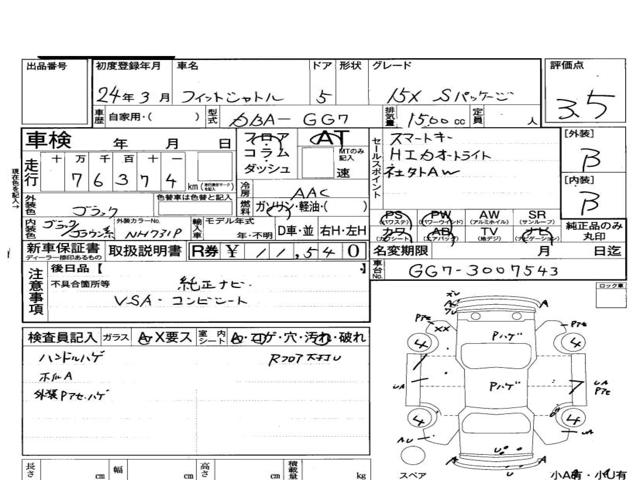 出品番号 初度登録年月 車名 ドア 形状 グレード 評価点
24年3月 フィットシャトル 5 15X Sパッケージ 3.5
車歴 自家用・( ) 型式 DBA-GG7 排気量 1500cc 定員 人
車検 年 月 日
フロア コラム ダッシュ AT MTのみ記入 速
セールスポイント
スマートキー
HIDオートライト
社外AW
[外装] B
[内装] B
現在色を記入→
走行 十 万 千 百 十 一
7 6 3 7 4 km
冷房 AAC
燃料 ガソリン・軽油・( )
外装色 ブラック 色替車は色替と記入
内装色 外装カラーNo. NH731P
輸入車 モデル年式 年・不明 D車・並 右H・左H
PS (パワステ) PW (パワーウインド) AW (アルミホイル) SR (サンルーフ)
カワ (カワシート) AB (エアバッグ) TV (地デジ) ナビ (ナビゲーション)
純正品のみ丸印
新車保証書 ディーラー捺印あるもの 取扱説明書 R券 ¥ 11,540
名変期限 月 日迄
車台No. GG7-3007543
注意事項
後日品 [
不具合箇所等 純正ナビ
VSA・コンビシート
ロック車
検査員記入 ガラス A・X要ス 室内シート A・コゲ・穴・汚れ・破れ
ハンドルハゲ
ホイルA
Pハゲ
Pハゲ
A
A
A
XX
4
4
4
4
UA
UA
AU
UA
スペア
小A有・小U有
長さ cm 幅 cm 高さ cm 積載量 kg